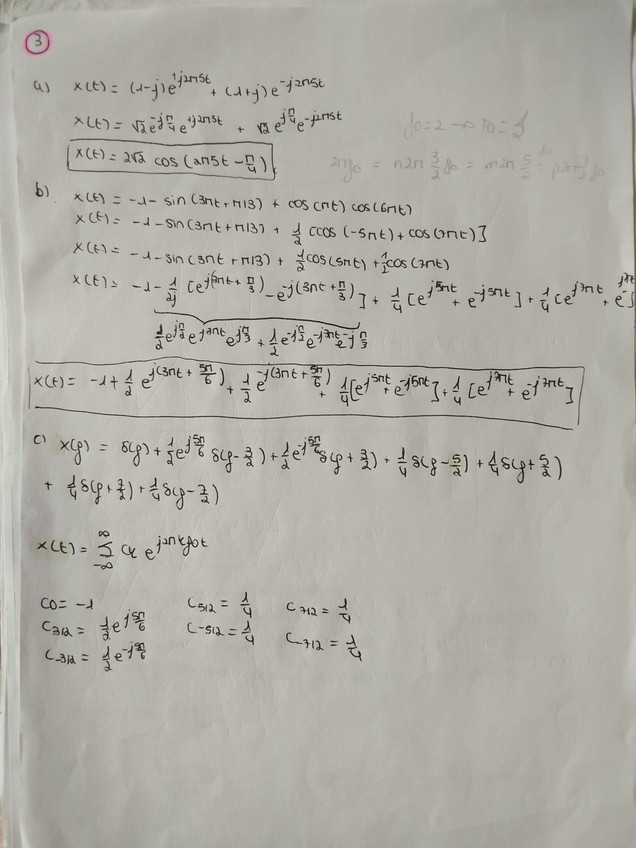 3
a) x(t) = (1-j)e^{+j2π5t} + (1+j)e^{-j2π5t}
x(t) = √2 e^{-jπ/4} e^{+j2π5t} + √2 e^{jπ/4} e^{-j2π5t}
x(t) = 2√2 cos(2π5t - π/4)
b) x(t) = -1 - sin(3πt + π/3) + cos(πt) cos(6πt)
x(t) = -1 - sin(3πt + π/3) + 1/2 [cos(-5πt) + cos(7πt)]
x(t) = -1 - sin(3πt + π/3) + 1/2 cos(5πt) + 1/2 cos(7πt)
x(t) = -1 - 1/2j [e^{j(3πt + π/3)} - e^{-j(3πt + π/3)}] + 1/4 [e^{j5πt} + e^{-j5πt}] + 1/4 [e^{j7πt} + e^{-j7πt}
1/2 e^{jπ/2} e^{j3πt} e^{jπ/3} + 1/2 e^{-jπ/2} e^{-j3πt} e^{-jπ/3}
x(t) = -1 + 1/2 e^{j(3πt + 5π/6)} + 1/2 e^{-j(3πt + 5π/6)} + 1/4 [e^{j5πt} + e^{-j5πt}] + 1/4 [e^{j7πt} + e^{-j7πt}]
c) X(f) = δ(f) + 1/2 e^{j5π/6} δ(f - 3/2) + 1/2 e^{-j5π/6} δ(f + 3/2) + 1/4 δ(f - 5/2) + 1/4 δ(f + 5/2)
+ 1/4 δ(f + 7/2) + 1/4 δ(f - 7/2)
x(t) = ∑_{-∞}^{∞} Ck e^{j2πkf0t}
C0 = -1 C5/2 = 1/4 C7/2 = 1/4
C3/2 = 1/2 e^{j5π/6} C-5/2 = 1/4 C-7/2 = 1/4
C-3/2 = 1/2 e^{-j5π/6}